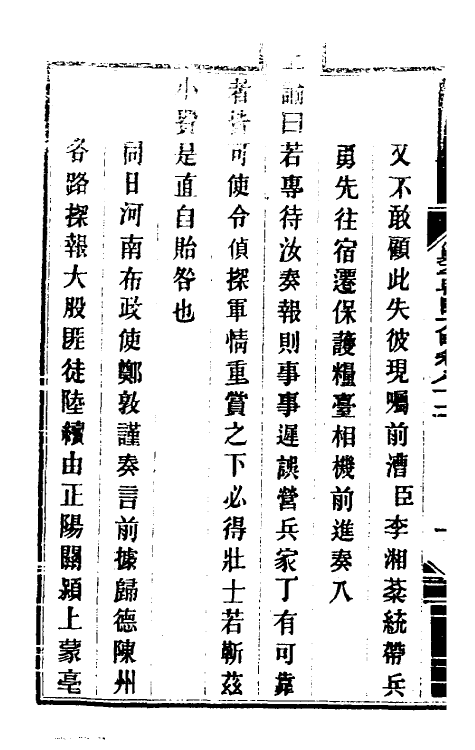 又不敢顧此失彼現囑前漕臣李湘棻統帶兵
勇先往宿遷保護糧臺相機前進奏入
上諭曰若專待汝奏報則事事遲誤營兵家丁有可靠
者皆可使令偵探軍情重賞之下必得壯士若靳茲
小費是直自貽咎也
同日河南布政使鄭敦謹奏言前據歸德陳州
各路探報大股匪徒陸續由正陽關潁上蒙亳